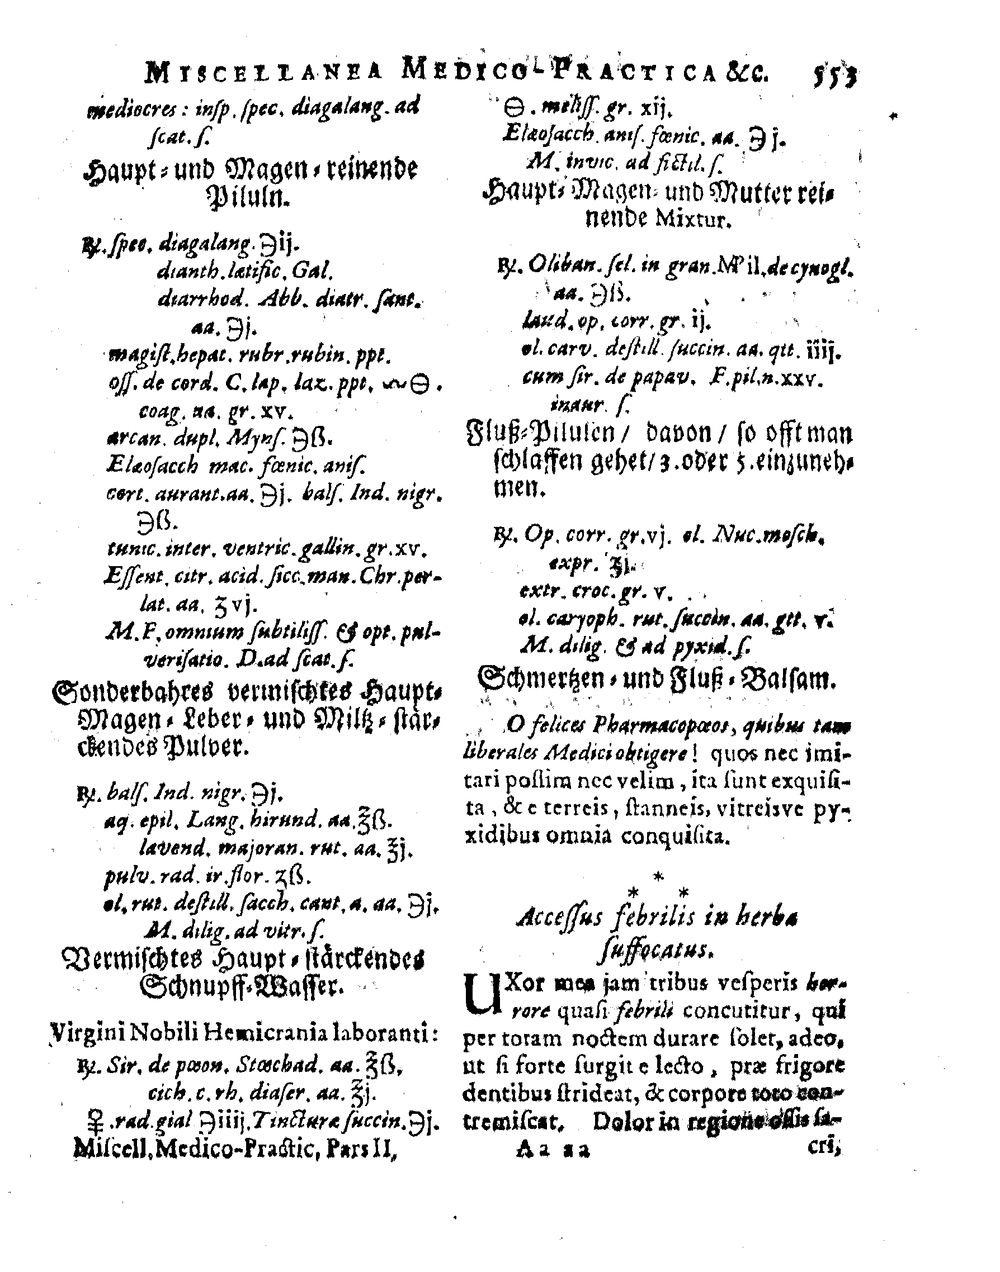 MISCELLANEA MEDICO-PRACTICA &c. 553
mediocres: insp. spec. diagalang. ad
ſcat. ſ.
Haupt⸗ und Magen⸗reinende
Piluln.
℞. ſpec. diagalang. ℈ij.
dianth. lætific. Gal.
diarrhod. Abb. diatr. ſant.
aa. ℈j.
magiſt. hepat. rubr. rubin. ppt.
oſſ. de cord. C. lap. laz. ppt. 🜔.
coag. aa. gr. xv.
arcan. dupl. Mynſ. ℈ß.
Elæoſacch mac. fœnic. aniſ.
cort. aurant. aa. ℈j. balſ. Ind. nigr.
℈ß.
tunic. inter. ventric. gallin. gr. xv.
Eſſent. citr. acid. ſicc. man. Chr. per-
lat. aa. ʒvj.
M. F. omnium ſubtiliſſ. & opt. pul-
veriſatio. D. ad ſcat. ſ.
Sonderbahres vermiſchtes Haupt⸗
Magen⸗ Leber⸗ und Miltz⸗ſtär⸗
ckendes Pulver.
℞. balſ. Ind. nigr. ℈j.
aq. epil. Lang. hirund. aa. ℥ß.
lavend. majoran. rut. aa. ℥j.
pulv. rad. ir. flor. ʒß.
ol. rut. deſtill. ſacch. cant. a. aa. ℈j.
M. dilig. ad vitr. ſ.
Vermiſchtes Haupt⸗ſtärckendes
Schnupff⸗Waſſer.
Virgini Nobili Hemicrania laboranti:
℞. Sir. de pœon. Stœchad. aa. ℥ß.
cich. c. rh. diaſer. aa. ℥j.
♀. rad. gial ℈iiij. Tincturæ ſuccin. ℈j.
Miſcell. Medico-Practic. Pars II.
🜔. meliſſ. gr. xij.
Elæoſacch. aniſ. fœnic. aa. ℈j.
M. invic. ad fictil. ſ.
Haupt⸗ Magen⸗ und Mutter rei⸗
nende Mixtur.
℞. Oliban. ſel. in gran. Mß il. de cynogl.
aa. ℈ß.
laud. op. corr. gr. ij.
ol. carv. deſtill. ſuccin. aa. gtt. iiij.
cum ſir. de papav. F. pil. n. xxv.
inaur. ſ.
Fluß⸗Pilulen/ davon/ ſo offt man
ſchlaffen gehet/ 3. oder 5. einzuneh⸗
men.
℞. Op. corr. gr. vj. ol. Nuc. moſch.
expr. ʒj.
extr. croc. gr. v.
ol. caryoph. rut. ſuccin. aa. gtt. v.
M. dilig. & ad pyxid. ſ.
Schmertzen⸗ und Fluß⸗Balſam.
O felices Pharmacopœos, quibus tam
liberales Medici obtigere! quos nec imi-
tari poſſim nec velim, ita ſunt exquiſi-
ta, & e terreis, ſtanneis, vitreisve py-
xidibus omnia conquiſita.
*
* *
Acceſſus febrilis in herba
ſuffocatus.
UXor mea jam tribus veſperis hor-
rore quaſi febrili concutitur, qui
per totam noctem durare ſolet, adeo,
ut ſi forte ſurgit e lecto, præ frigore
dentibus ſtrideat, & corpore toto con-
tremiſcat. Dolor in regione oſſis ſa-
Aa aa cri,